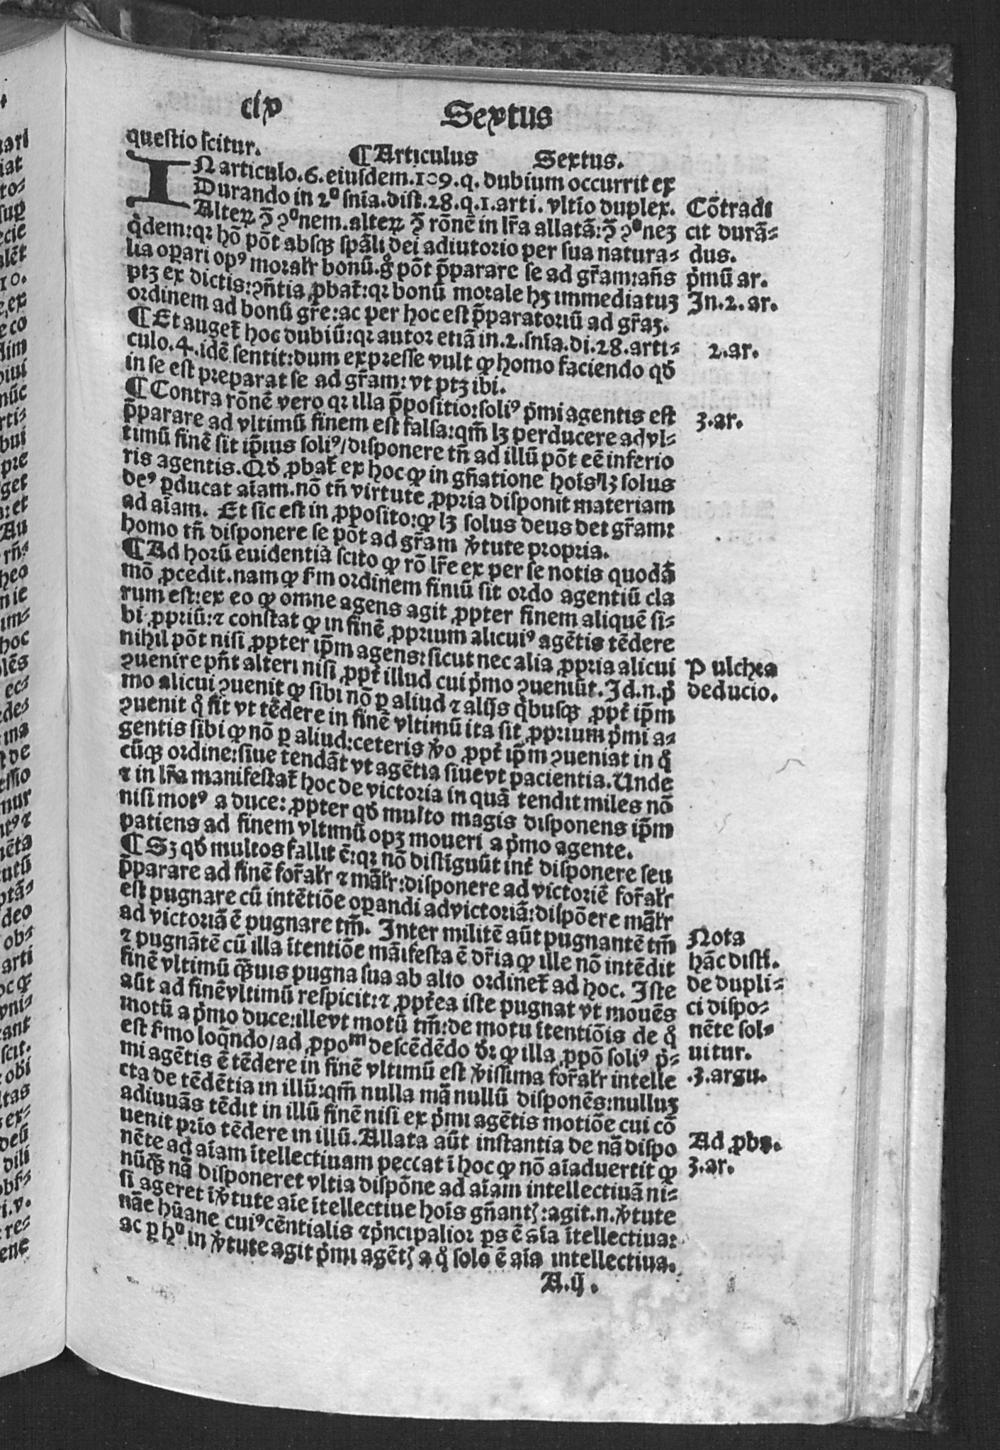 cix Sextus
questio scitur.
¶Articulus Sextus.
IN articulo.6.eiusdem.109.q. dubium occurrit ex
Durando in 2º sn̄ia.dist.28.q.1.arti. vltĩo duplex.
Alterꝝ ꝯ̄ ꝯºnem.alterꝝ ꝯ̄ rōnē in lr̄a allatā:ꝯ̄ ꝯºneꝫ
q̇dem:qꝛ hō pōt absqꝫ spāli dei adiutorio per sua natura-
lia oꝑari opꝰ moralr̄ bonū.g̊ pōt p̄parare se ad gr̄am:an̄s
ptꝫ ex dictis:ꝯn̄tia ꝓbat̄:qꝛ bonū morale hꝫ immediatuꝫ
ordinem ad bonū gr̄e:ac per hoc est p̄paratoriū ad gr̄aꝫ.
¶Et auget̄ hoc dubiū:qꝛ autor etiā in.2.sn̄ia.di.28.arti-
culo.4.idē sentit:dum expresse vult ꝙ homo faciendo qd̄
in se est preparat se ad gr̄am: vt ptꝫ ibi.
¶Contra rōnē vero qꝛ illa p̄positio:soliꝰ p̄mi agentis est
p̄parare ad vltimū finem est falsa:qm̄ lꝫ perducere ad vl-
timū finē sit ip̄ius soliꝰ/disponere tn̄ ad illū pōt eē inferio
ris agentis.Qd̄ ꝓbat̄ ex hoc ꝙ in gn̄atione hoīsꝰlꝫ solus
deꝰ ꝑducat aīam.nō tn̄ virtute ꝓpria disponit materiam
ad aīam. Et sic est in ꝓposito:ꝙ lꝫ solus deus det gr̄am:
homo tn̄ disponere se pōt ad gr̄am v̄tute propria.
¶Ad horū euidentiā scito ꝙ rō lr̄e ex per se notis quodā
mō ꝓcedit.nam ꝙ fm̄ ordinem finiū sit ordo agentiū cla
rum est:ex eo ꝙ omne agens agit ꝓpter finem aliquē si-
bi ꝓpriū:⁊ constat ꝙ in finē ꝓprium alicuiꝰ agētis tēdere
nihil pōt nisi ꝓpter ip̄m agens:sicut nec alia ꝓpria alicui
ꝯuenire pn̄t alteri nisi ꝓpt̄ illud cui p̄mo ꝯueniūt.Id.n.p̄
mo alicui ꝯuenit ꝙ sibi nō ꝑ aliud ⁊ alijs q̇busqꝫ ꝓpt̄ ip̄m
ꝯuenit q̊ fit vt tēdere in finē vltimū ita sit ꝓprium p̄mi a-
gentis sibi ꝙ nō ꝑ aliud:ceteris v̄o ꝓpt̄ ip̄m ꝯueniat in q̊
cūqꝫ ordine:siue tendāt vt agētia siue vt pacientia.Unde
⁊ in lr̄a manifestat̄ hoc de victoria in quā tendit miles nō
nisi motꝰ a duce: ꝓpter qd̄ multo magis disponens ip̄m
patiens ad finem vltimū opꝫ moueri a p̄mo agente.
¶Sꝫ qd̄ multos fallit ē:qꝛ nō distiguūt int̄ disponere seu
p̄parare ad finē for̄alr̄ ⁊ mālr̄:disponere ad victoriē for̄alr̄
est pugnare cū intētiōe oꝑandi ad victoriā:dispōere mālr̄
ad victoriā ē pugnare tm̄. Inter militē aūt pugnantē tm̄
⁊ pugnātē cū illa ītentiōe māifesta ē dr̄ia ꝙ ille nō intēdit
finē vltimū q̄uis pugna sua ab alto ordinet̄ ad hoc. Iste
aūt ad finēvltimū respicit:⁊ ꝓpt̄ea iste pugnat vt mouēs
motū a p̄mo duce:illevt motū tm̄:de motu ītentiōis de q̊
est fm̄o loq̄ndo/ad ꝓpoᵐ descēdēdo dr̄: ꝙ illa ꝓpō soliꝰ p̄-
mi agētis ē tēdere in finē vltimū est v̄issima for̄alr̄ intelle
cta de tēdētia in illū:qm̄ nulla mā nullū disponēs:nulluꝫ
adiuuās tēdit in illū finē nisi ex p̄mi agētis motiōe cui cō
uenit prīo tēdere in illū.Allata aūt instantia de nā dispo
nēte ad aīam ītellectiuam peccat ī hoc ꝙ nō aīaduertit ꝙ
nūq̄ nā disponeret vltīa dispōne ad aīam intellectiuā ni-
si ageret ī v̄tute aīe ītellectiue hoīs gn̄antꝭ:agit.n.v̄tute
nāe hūane cuiꝰcēntialis ⁊p̄ncipalior ps ē aīa ītellectiua:
ac ꝑ hº in v̄tute agit p̄mi agētꝭ a q̊ solo ē aīa intellectiua.
A.ij.
Cōtradi
cit durā-
dus.
p̄mū ar.
In.2. ar.
2.ar.
3.ar.
Pulchra
deducio.
Nota
hāc dist̄.
de dupli-
ci dispo-
nēte sol-
uitur.
.3.argu.
Ad ꝓbꝫ.
3.ar.